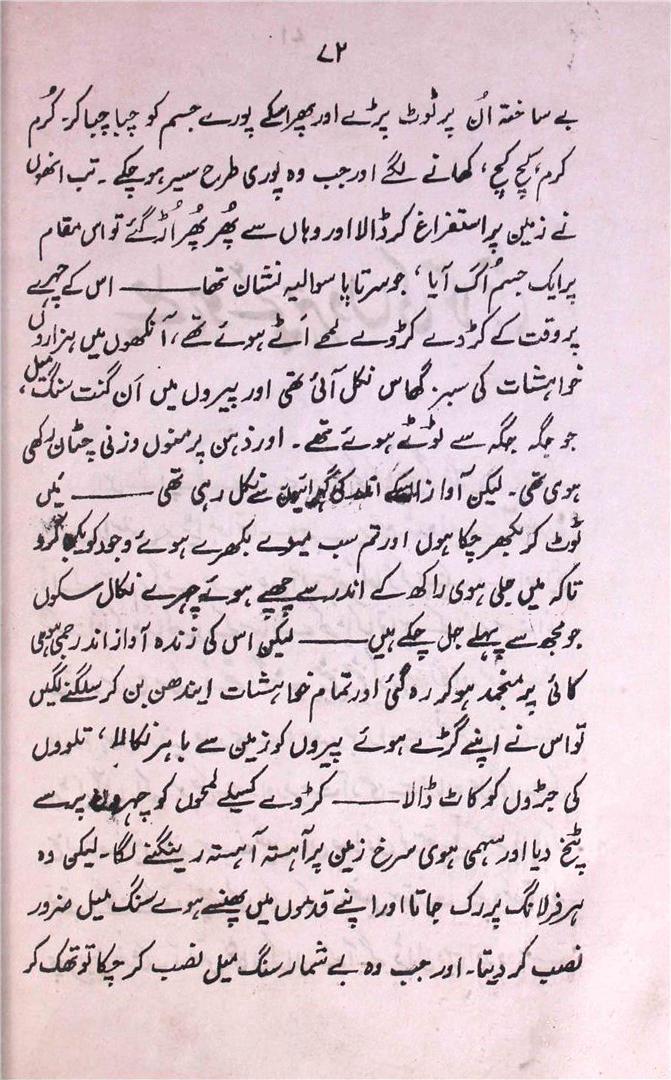 ۷۲
بے ساختہ اُن پر ٹوٹ پڑے اور پھر اسکے پورے جسم کو چبا چبا کر۔ کُرم
کرم، کچ کچ، کھانے لگے اور جب وہ پوری طرح سیر ہو چکے۔ تب انھوں
نے زمین پر استفراغ کر ڈالا اور وہاں سے پُھر پُھر اُڑ گئے تو اس مقام
پر ایک جسم اُگ آیا، جو سرتاپا سوالیہ نشان تھا ــــــ اس کے چہرے
پر وقت کے کڑوے کڑوے لمحے اَٹے ہوئے تھے، آنکھوں میں ہزاروں
خواہشات کی سبز گھاس نکل آئی تھی اور پیروں میں اَن گنت سنگ میل،
جو جگہ جگہ سے ٹوٹے ہوئے تھے۔ اور ذہن پر منوں وزنی چٹان رکھی
ہوی تھی۔ لیکن آواز اسکے اندر کی گہرائیوں سے نکل رہی تھی ــــــ میں
ٹوٹ کر بکھر چکا ہوں اور تم سب میرے بکھرے ہوئے وجود کو یکجا کرو
تاکہ میں جلی ہوی راکھ کے اندر سے چھپے ہوئے چہرے نکال سکوں
جو مجھ سے پہلے جل چکے ہیں ــــــ لیکن اس کی زندہ آواز اندر جمی ہوئی
کائی پر منجمد ہو کر رہ گئی اور تمام خواہشات ایندھن بن کر سلگنے لگیں
تو اس نے اپنے گڑے ہوئے پیروں کو زمین سے باہر نکالا، تلووں
کی جڑوں کو کاٹ ڈالا ــــــ کڑوے کسیلے لمحوں کو چہروں پر سے
پٹخ دیا اور سہمی ہوی سرخ زمین پر آہستہ آہستہ رینگنے لگا۔ لیکن وہ
ہر فرلانگ پر رک جاتا اور اپنے قدموں میں پھنسے ہوے سنگ میل ضرور
نصب کر دیتا۔ اور جب وہ بے شمار سنگ میل نصب کر چکا تو تھک کر